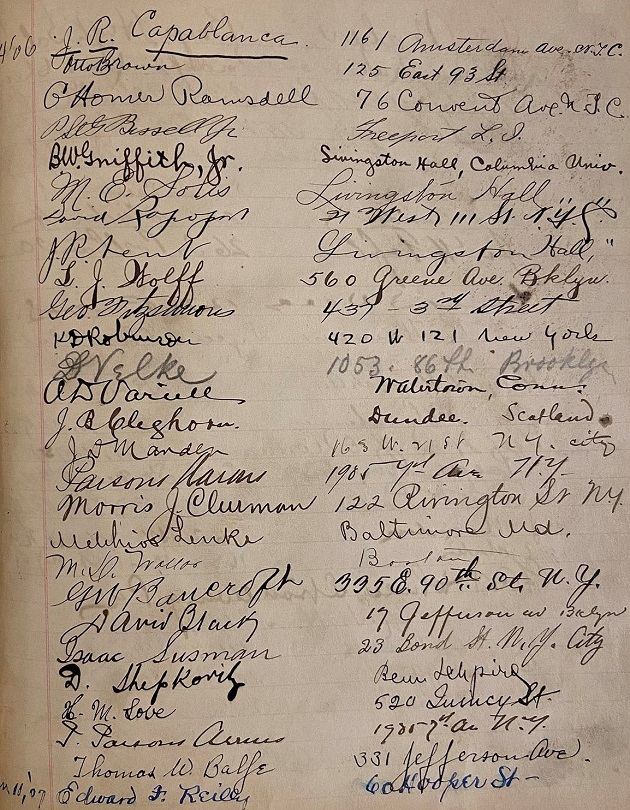 J. R. Capablanca 1161 Amsterdam ave. N.Y.C.
Otto Brown 125 East 93 St
C Homer Ramsdell 76 Convent Ave. N.Y.C.
Bissell Jr Freeport L. I.
B.W. Griffith, Jr. Livingston Hall, Columbia Univ.
M. E. Solis Livingston Hall "
David Rapoport 21 West 111 St. N.Y.
Livingston Hall, "
S. J. Wolff 560 Greene Ave. Bklyn.
Geo Fitzsimons 437 - 3rd Street
K D Robinson 420 W 121 New York
Velke 1053. 86th Brooklyn
Watertown, Conn.
J. B. Cleghorn. Dundee. Scotland.
J. D Marden 163 W. 21st N.Y. city
Parsons 1985 7th Ave N.Y.
Morris J. Clurman 122 Rivington St N.Y.
Melchior Lenke Baltimore Md.
M. D. Boston
GW Bancroft 335 E. 90th St. N.Y.
David Black 17 Jefferson av
Isaac Susman 23 Bond St. N.Y. City
D. Shepkovitz
H. M. Love 520 Quincy St.
Parsons 1985 7th Av N.Y.
Thomas W. Balfe 331 Jefferson Ave.
Edward F. Reilly 60 Hooper St -